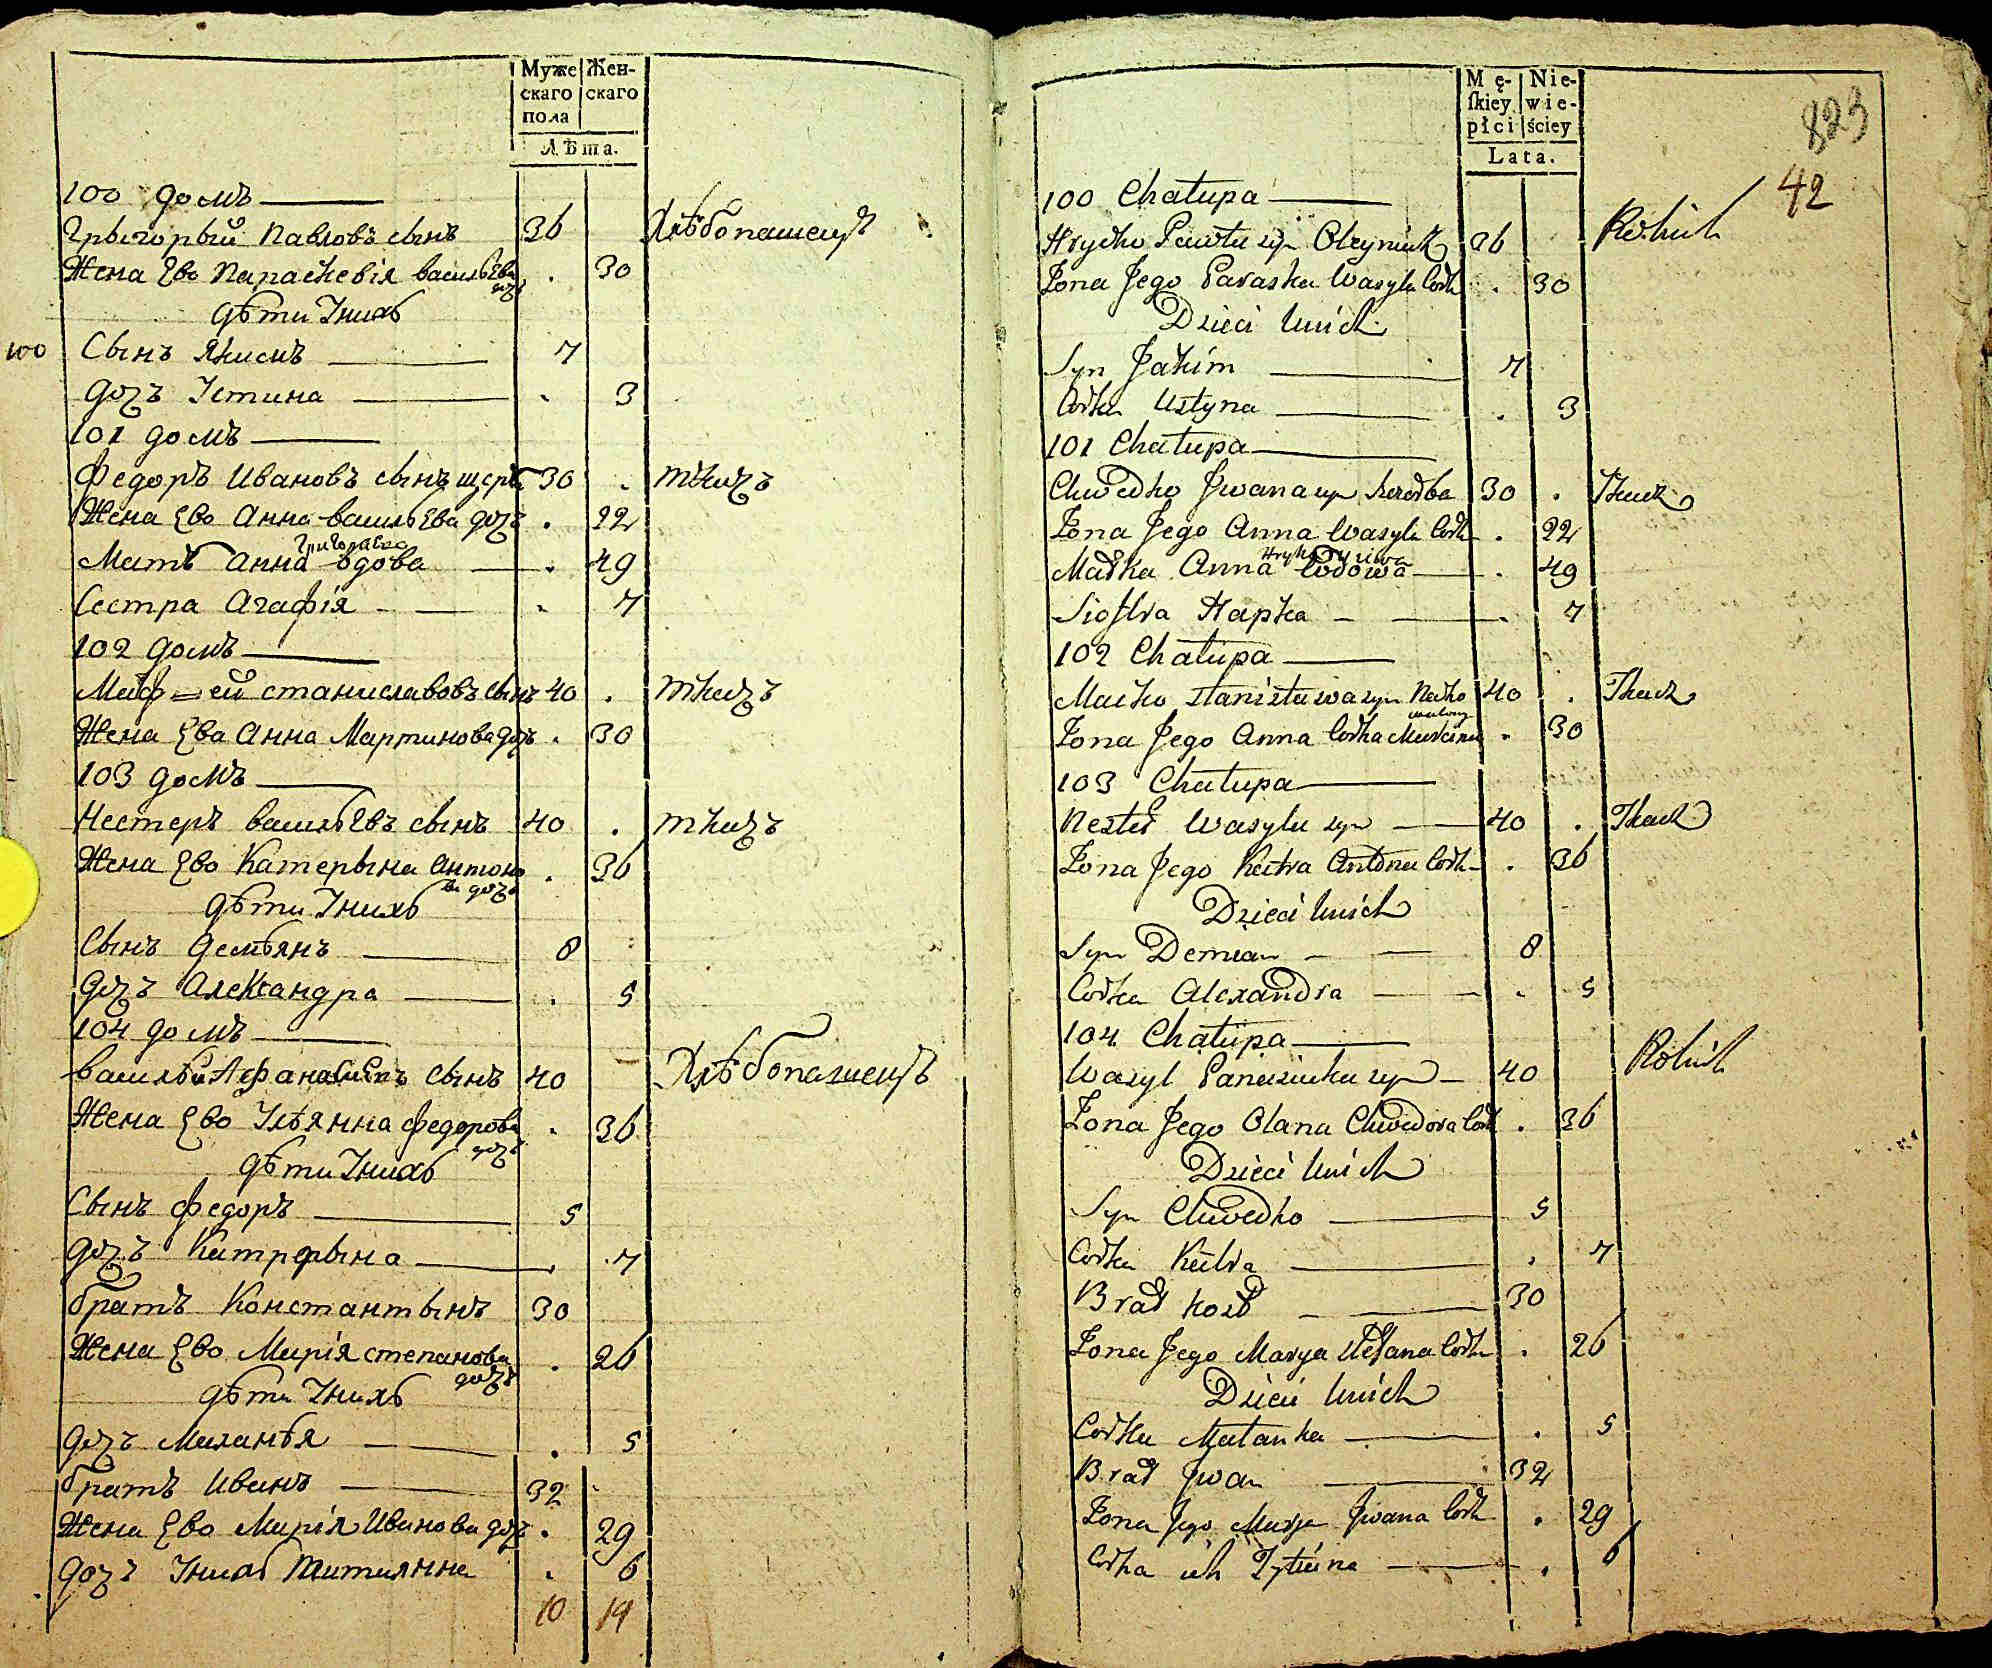 Муже Жен-
скаго скаго
пола
Лѣта.
100 домъ
Грыгорый Павловъ сынъ 36 Хлѣбопашецъ
Жена Ево Параскевія васильЕва дочь . 30
дѣти Ӏнихъ
100 Сынъ Якимъ 7
дочъ Ӏстина . 3
101 домъ
Федоръ Ивановъ сынъ щерб 30 . ткачъ
Жена Ево Анна васильЕва дочъ . 22
Мать Анна Григорьева вдова . 49
Сестра Агафія . 7
102 домъ
Маф=ей станиславовъ сынъ 40 . ткачъ
Жена Ева Анна Мартинова дочъ . 30
103 домъ
Нестеръ васильЕвъ сынъ 40 . ткачъ
Жена Ево Катерына Антоно ва дочъ . 36
дѣти Ӏнихъ
Сынъ Демьянъ 8
дочъ Александра . 5
104 домъ
василъй Афанасьевъ сынъ 40 Хлѣбопашецъ
Жена Ево Ульянна федорова дочъ . 36
дѣти Ӏнихъ
Сынъ федоръ 5
дочъ Катрерына . 7
братъ Константынъ 30
Жена Ево Марія степанова дочъ . 26
дѣти Ӏнихъ
дочъ Маланья . 5
братъ Иванъ 32
Жена Ево Марія Иванова дочъ . 29
дочъ Ӏнихъ Татиянна . 6
10 14
Mę- Nie-
ſkiey wie-
płci ściey
Lata.
823
42
100 Chałupa
Hrycko Pawła syn Oleyniuk 36 Rolnik
Żona Jego Paraska Wasyla Corka . 30
Dzieci Unich
Syn Jakim 7
Corka Ustyna . 3
101 Chałupa
Chwedko Jwana syn Szczerba 30 . Tkacz
Żona Jego Anna Wasyla Corka . 22
Matka Anna Hryhoryiwa Wdowa . 49
Siostra Hapka . 7
102 Chałupa
Maćko stanisława syn 40 . Tkacz
Żona Jego Anna Corka Marcina . 30
103 Chałupa
Nester Wasyla syn 40 . Tkacz
Żona Jego Katra Antona Corka . 36
Dzieci Unich
Syn Demian 8
Corka Alexandra . 5
104 Chałupa
Wasyl Panasiuka syn 40 Rolnik
Żona Jego Olana Chwedora Cork . 36
Dzieci Unich
Syn Chwedko 5
Corka Katra . 7
Brat Kost 30
Żona Jego Marya Stefana Corka . 26
Dzieci Unich
Corka Małanka . 5
Brat Jwan 32
Żona Jego Marya Jwana Cork . 29
Corka ich Tytiana . 6